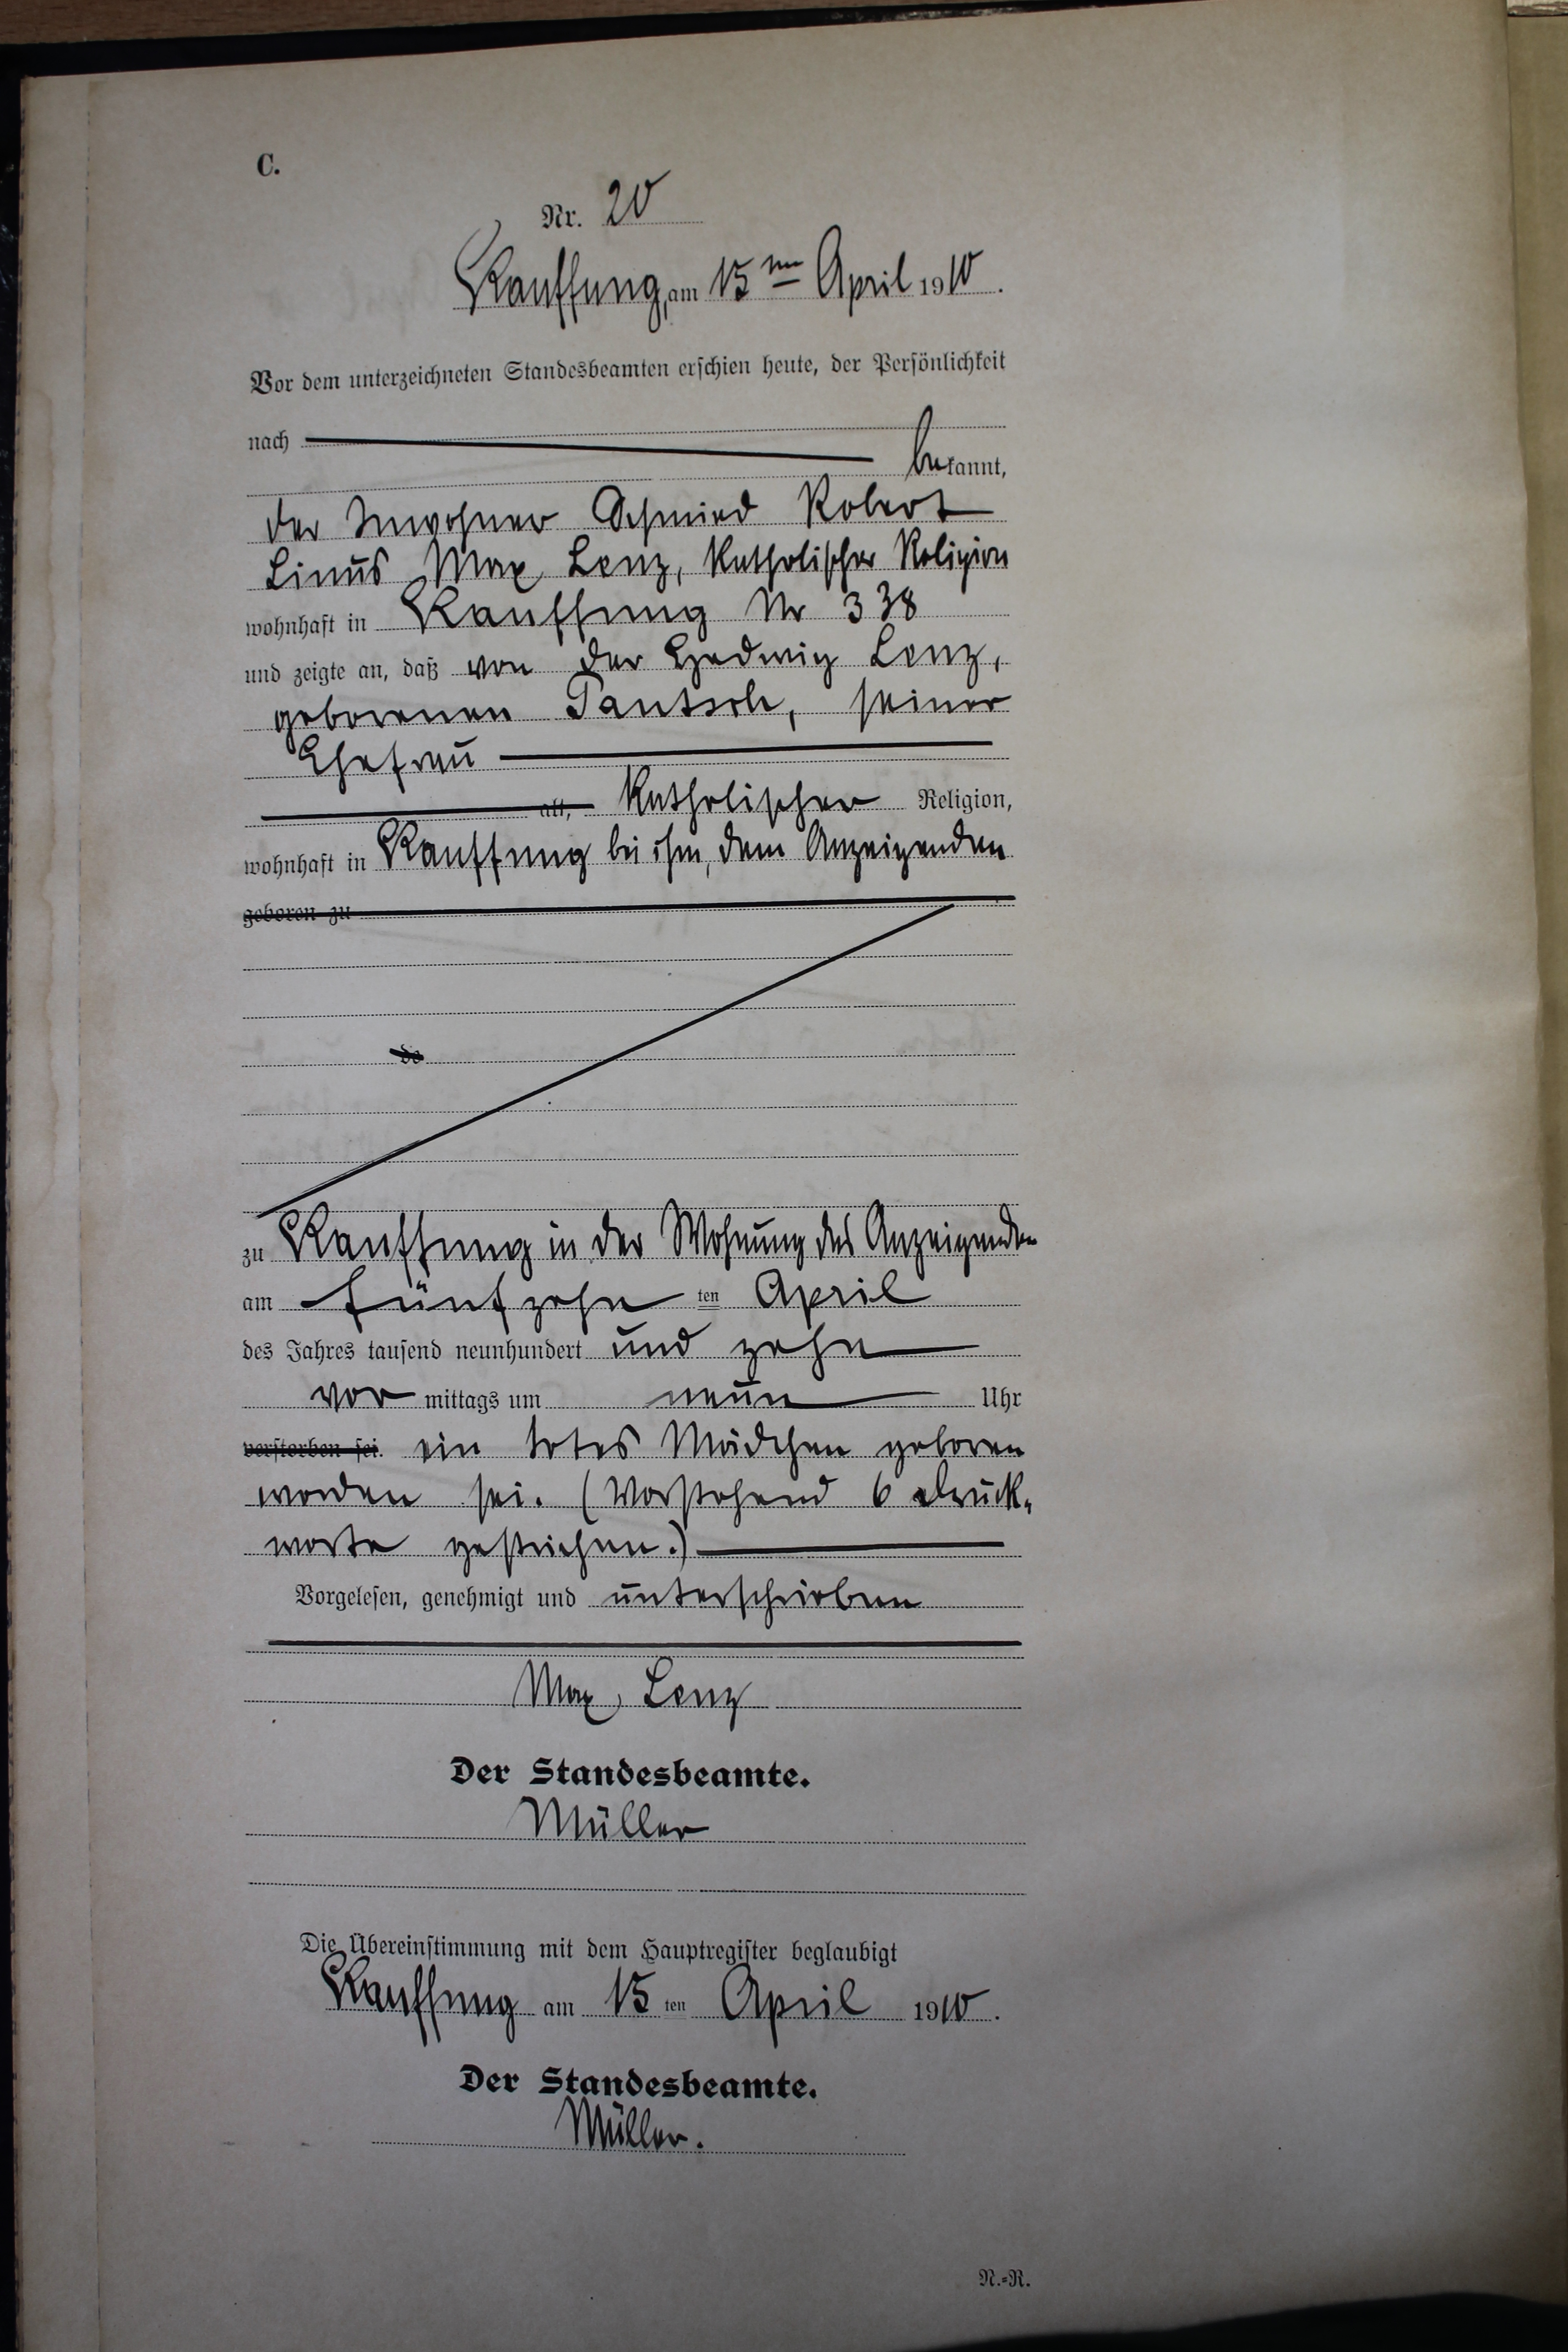 C.
Nr. 20
Kauffung, am 15ten April 1910.
Vor dem unterzeichneten Standesbeamten erschien heute, der Persönlichkeit
nach
bekannt,
der Inwohner Schmied Robert
Linus Max Lenz, katholischer Religion
wohnhaft in Kauffung Nr 338
und zeigte an, daß von der Hedwig Lenz,
geborenen Pantsch, seiner
Ehefrau
alt, katholischer Religion,
wohnhaft in Kauffung bei ihm, dem Anzeigenden
geboren zu
de
zu Kauffung in der Wohnung des Anzeigenden
am fünfzehn ten April
des Jahres tausend neunhundert und zehn
vor mittags um neun Uhr
verstorben sei. ein totes Mädchen geboren
worden sei. (Vorstehend 6 Druck-
worte gestrichen.)
Vorgelesen, genehmigt und unterschrieben
Max Lenz
Der Standesbeamte.
Müller
Die Übereinstimmung mit dem Hauptregister beglaubigt
Kauffung am 15 ten April 1910.
Der Standesbeamte.
Müller.
N.-R.